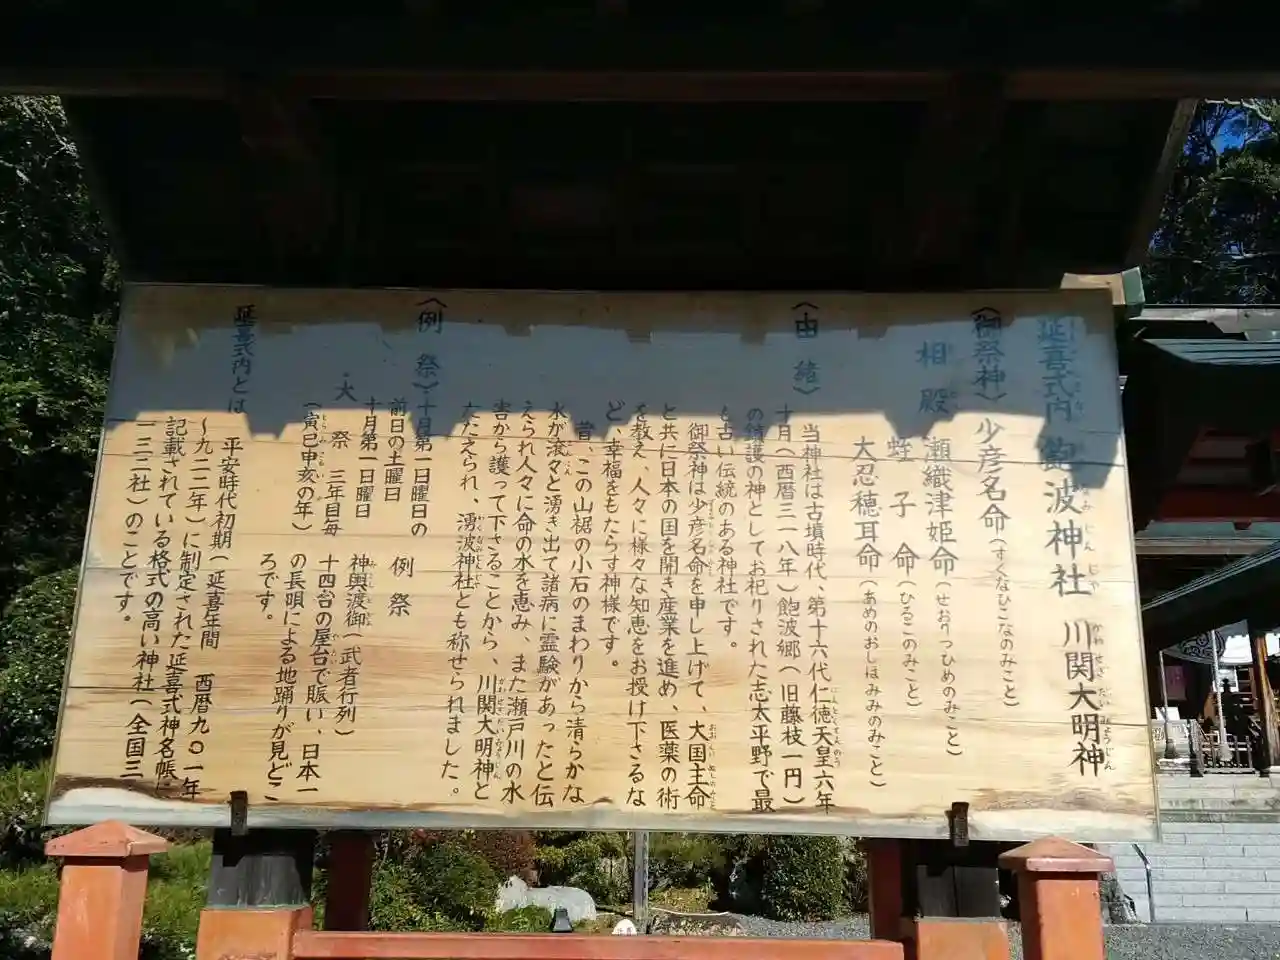 延喜式内 飽波神社 川関大明神
(御祭神)少彦名命(すくなひこなのみこと)
相殿 瀬織津姫命(せおりつひめのみこと)
蛭子命(ひるこのみこと)
大忍穂耳命(あめのおしほみみのみこと)
(由緒)当神社は古墳時代、第十六代仁徳天皇六年
十月(西暦三一八年)飽波郷(旧藤枝一円)
の鎮護の神としてお祀りされた志太平野で最
も古い伝統のある神社です。
御祭神は少彦名命を申し上げて、大国主命
と共に日本の国を開き産業を進め、医薬の術
を教え、人々に様々な知恵をお授け下さるな
ど、幸福をもたらす神様です。
昔、この山裾の小石のまわりから清らかな
水が滾々と湧き出て諸病に霊験があったと伝
えられ人々に命の水を恵み、また瀬戸川の水
害から護って下さることから、川関大明神と
たたえられ、湧波神社とも称せられました。
(例祭)・十月第一日曜日の
前日の土曜日 例祭
十月第一日曜日
・大祭 三年目毎 神輿渡御(武者行列)
(寅巳申亥の年) 十四台の屋台で賑い、日本一
の長唄による地踊りが見どこ
ろです。
延喜式内とは 平安時代初期(延喜年間 西暦九〇一年
〜九二二年)に制定された延喜式神名帳に
記載されている格式の高い神社(全国三
一三二社)のことです。